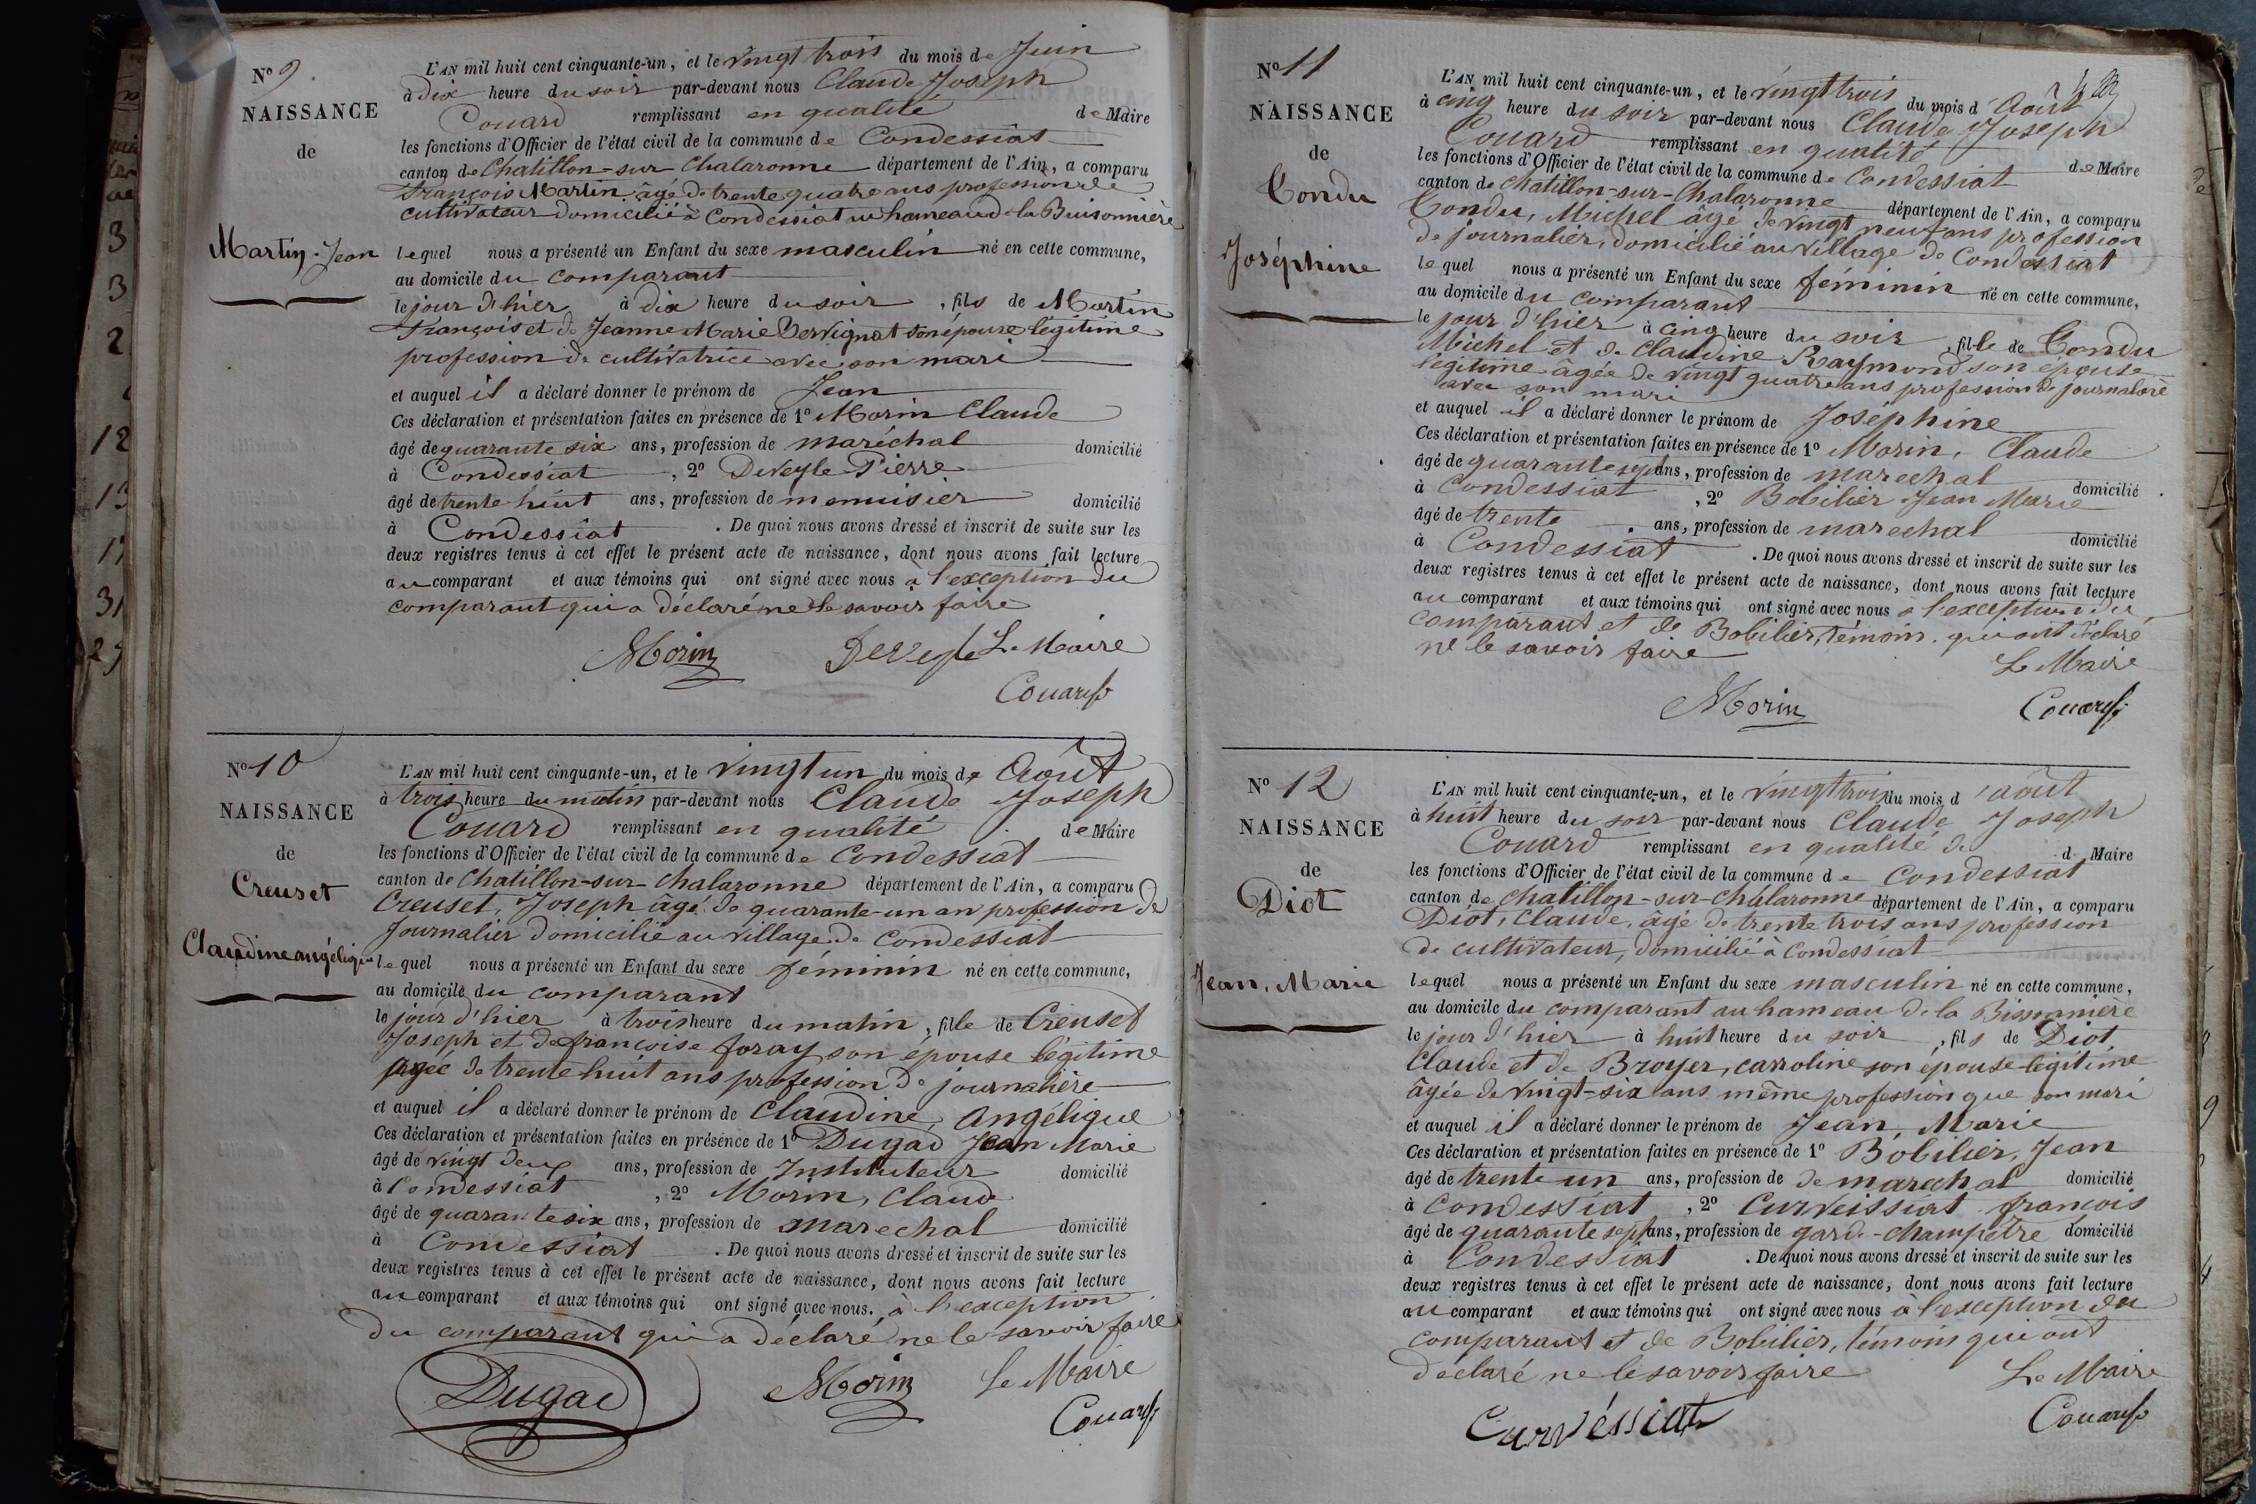 N° 9
NAISSANCE
de
Martin Jean
L'AN mil huit cent cinquante-un, et le vingt trois du mois de Juin
à dix heure du soir par-devant nous Claude Joseph
Couard remplissant en qualité de Maire
les fonctions d'Officier de l'état civil de la commune de Condessiat
canton de Chatillon-sur-Chalaronne département de l'Ain, a comparu
François Martin âgé de trente quatre ans profession de
cultivateur domicilié à Condessiat au hameau de la Buisonnière
lequel nous a présenté un Enfant du sexe masculin né en cette commune,
au domicile du comparant
le jour d'hier à dix heure du soir, fils de Martin
François et de Jeanne Marie Bervignat son épouse légitime
profession de cultivatrice avec son mari
et auquel il a déclaré donner le prénom de Jean
Ces déclaration et présentation faites en présence de 1° Morin Claude
âgé de quarante six ans, profession de maréchal domicilié
à Condessiat, 2° Deveyle Pierre
âgé de trente huit ans, profession de menuisier domicilié
à Condessiat. De quoi nous avons dressé et inscrit de suite sur les
deux registres tenus à cet effet le présent acte de naissance, dont nous avons fait lecture
au comparant et aux témoins qui ont signé avec nous à l'exception du
comparant qui a déclaré ne le savoir faire
Morin Deveyle Le Maire
Couard
N° 10
NAISSANCE
de
Creuset
Claudine angélique
L'AN mil huit cent cinquante-un, et le vingt un du mois de Août
à trois heure du matin par-devant nous Claude Joseph
Couard remplissant en qualité de Maire
les fonctions d'Officier de l'état civil de la commune de Condessiat
canton de Chatillon-sur-Chalaronne département de l'Ain, a comparu
Creuset, Joseph âgé de quarante-un an profession de
Journalier domicilié au village de Condessiat
lequel nous a présenté un Enfant du sexe féminin né en cette commune,
au domicile du comparant
le jour d'hier à trois heure du matin, fille de Creuset
Joseph et de françoise foray son épouse légitime
agée de trente huit ans profession de journalière
et auquel il a déclaré donner le prénom de Claudine, Angélique
Ces déclaration et présentation faites en présence de 1° Dugad Jean Marie
âgé de vingt deux ans, profession de Instituteur domicilié
à Condessiat, 2° Morin, Claude
âgé de quarante six ans, profession de marechal domicilié
à Condessiat. De quoi nous avons dressé et inscrit de suite sur les
deux registres tenus à cet effet le présent acte de naissance, dont nous avons fait lecture
au comparant et aux témoins qui ont signé avec nous. à l'exception
du comparant qui a déclaré ne le savoir faire
Dugad Morin Le Maire
Couard
N° 11
NAISSANCE
de
Condu
Joséphine
L'AN mil huit cent cinquante-un, et le vingt trois du mois d'Août
à cinq heure du soir par-devant nous Claude Joseph
Couard remplissant en qualité de Maire
les fonctions d'Officier de l'état civil de la commune de Condessiat
canton de Chatillon-sur-Chalaronne département de l'Ain, a comparu
Condu, Michel âgé de vingt neuf ans profession
de journalier, domicilié au village de Condessiat
lequel nous a présenté un Enfant du sexe féminin né en cette commune,
au domicile du comparant
le jour d'hier à cinq heure du soir, fille de Condu
Michel et de Claudine Raymond son épouse
légitime âgée de vingt quatre ans profession de journalière
avec son mari
et auquel il a déclaré donner le prénom de Joséphine
Ces déclaration et présentation faites en présence de 1° Morin, Claude
âgé de quarante sept ans, profession de marechal domicilié
à Condessiat, 2° Bobilier Jean Marie
âgé de trente ans, profession de marechal domicilié
à Condessiat. De quoi nous avons dressé et inscrit de suite sur les
deux registres tenus à cet effet le présent acte de naissance, dont nous avons fait lecture
au comparant et aux témoins qui ont signé avec nous à l'exception du
comparant et de Bobilier, témoin qui ont déclaré
ne le savoir faire
Le Maire
Morin Couard
N° 12
NAISSANCE
de
Diot
Jean, Marie
L'AN mil huit cent cinquante-un, et le vingt trois du mois d'août
à huit heure du soir par-devant nous Claude Joseph
Couard remplissant en qualité de d Maire
les fonctions d'Officier de l'état civil de la commune de Condessiat
canton de chatillon-sur-chalaronne département de l'Ain, a comparu
Diot, Claude, âgé de trente trois ans profession
de cultivateur, domicilié à Condessiat
lequel nous a présenté un Enfant du sexe masculin né en cette commune,
au domicile du comparant au hameau de la Bissonnière
le jour d'hier à huit heure du soir, fils de Diot
Claude et de Broyer, carroline son épouse légitime
âgée de vingt-six ans même profession que son mari
et auquel il a déclaré donner le prénom de Jean, Marie
Ces déclaration et présentation faites en présence de 1° Bobilier, Jean
âgé de trente un ans, profession de de marechal domicilié
à Condessiat, 2° Curveissiat françois
âgé de quarante sept ans, profession de garde-champêtre domicilié
à Condessiat. De quoi nous avons dressé et inscrit de suite sur les
deux registres tenus à cet effet le présent acte de naissance, dont nous avons fait lecture
au comparant et aux témoins qui ont signé avec nous à l'exception du
comparant et de Bobilier, témoin qui ont
déclaré ne le savoir faire Le Maire
Curvéssiat Couard